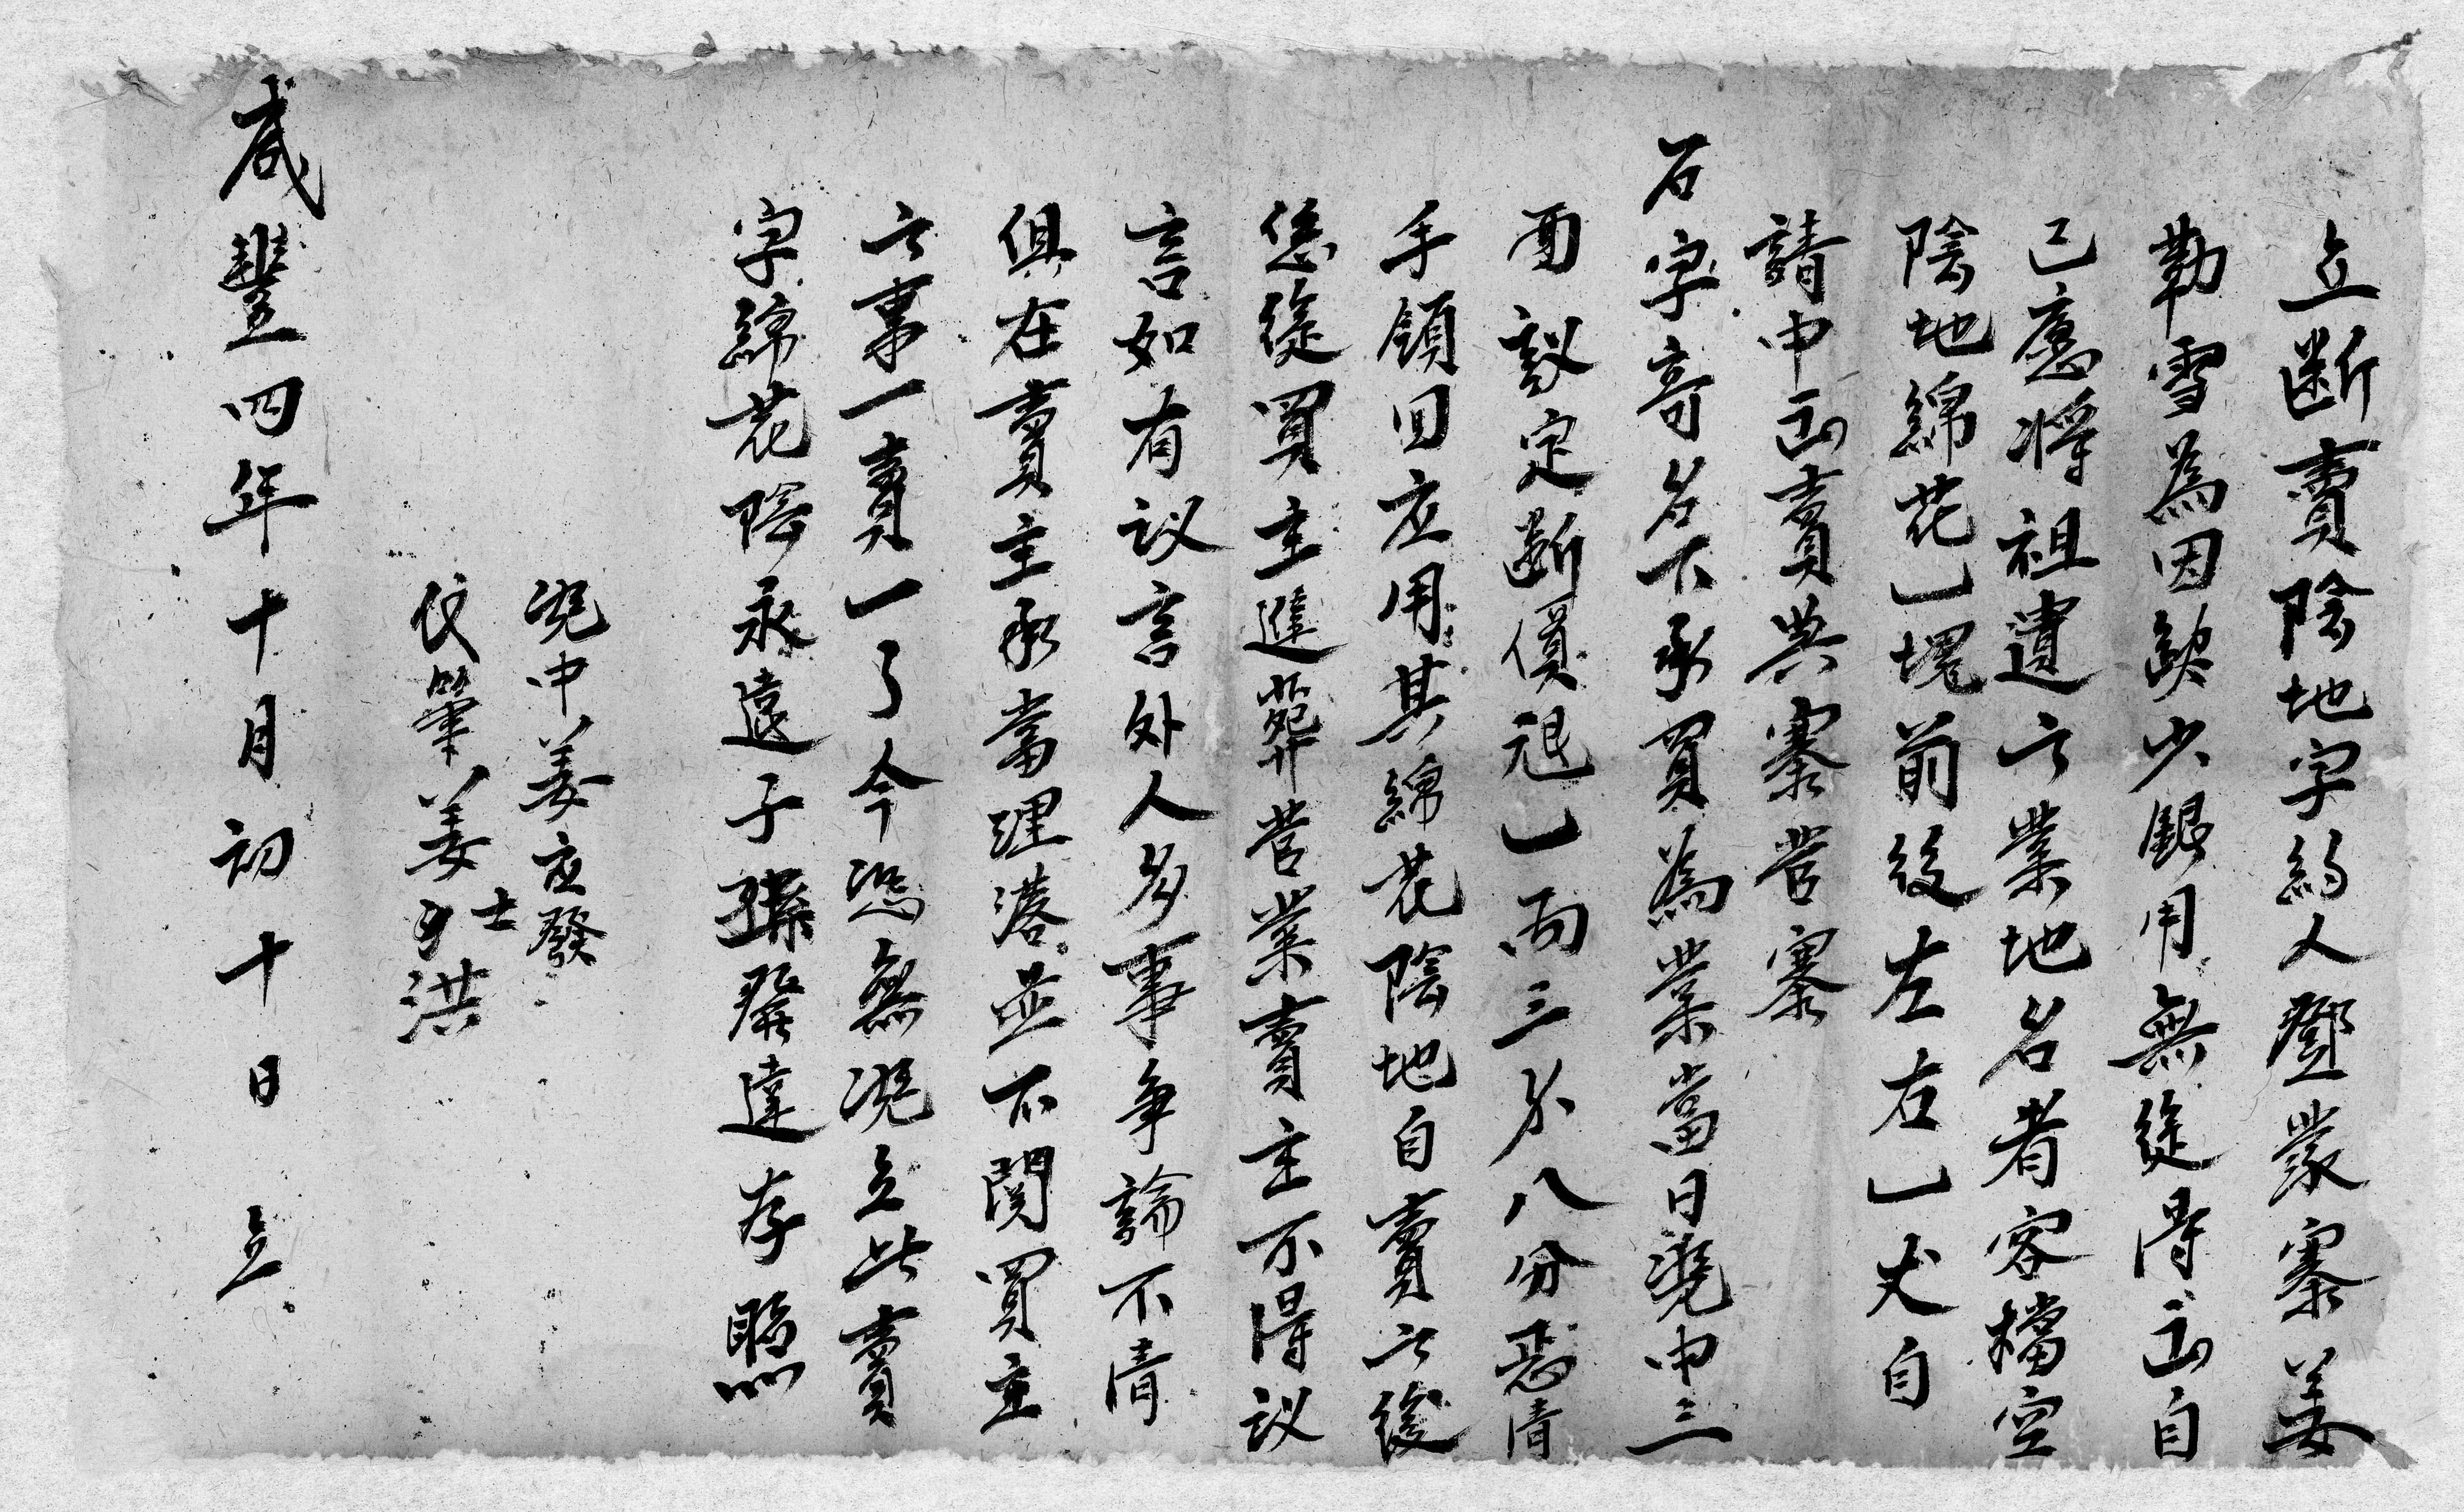 立断賣陰地字約人鄧蒙寨姜
勒雪為因缺少銀用無從得出自
己愿將祖遺之業地名者容檔空
陰地綿花一塊前後左右一丈自
請中出賣與寨昔寨
石字哥名下承買為業當日凴中三
面議定断價銀一両三分八分恐清
手領回应用其綿花陰地自賣之後
恁從買主進葬营業賣主不得议
言如有议言外人多事争論不清
俱在賣主承當理落並不関買主
之事一賣一了今恐無凴立此賣
字綿花陰永遠子孫發達存照
凴中姜应發
代筆姜士洪
咸豐四年十月初十日 立